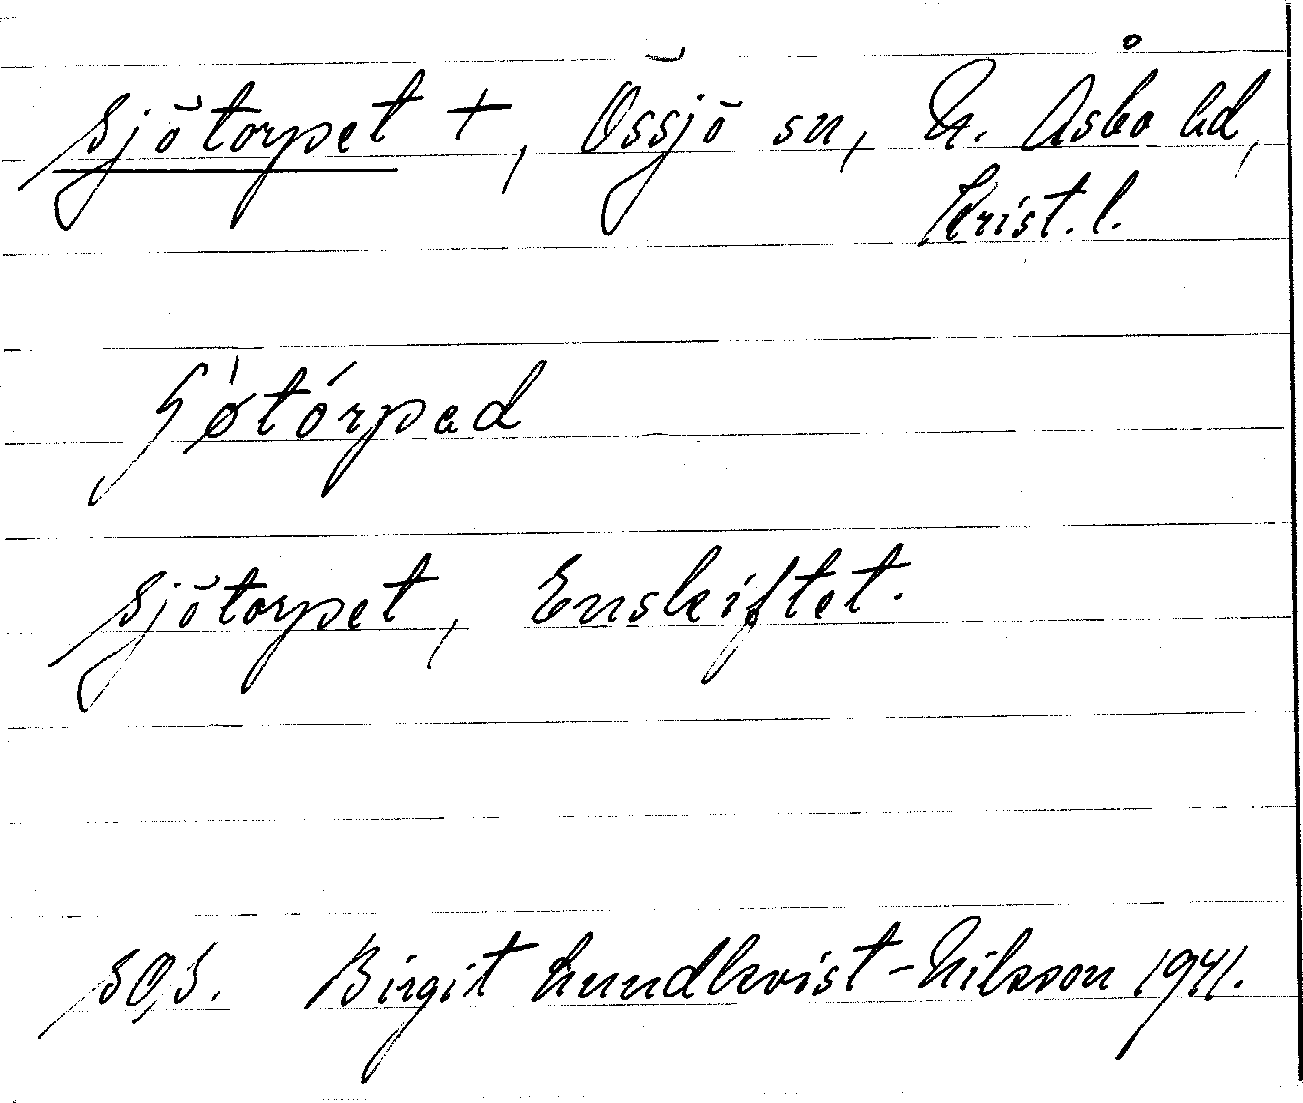 Sjötorpet +, Össjö sn, N. Åsbo hd,
Krist. l.
Sjötorpet, Enskiftet.
Birgit Lundkvist-Nilsson 1941.